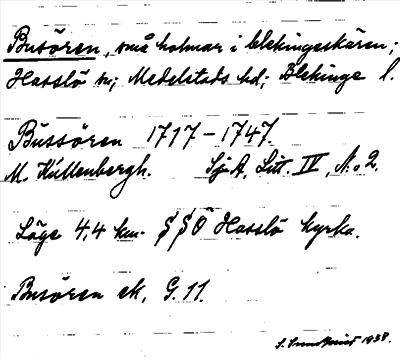 Busören, små holmar i blekingeskären;
Hasslö sn; Medelstads hd; Blekinge l.
Büssören 1717-1747.
M. Küllenbergh. Sj. A. Litt. IV, N:o 2.
Läge 4,4 km. SSÖ Hasslö kyrka.
Busören ek, G. 11.
1938.